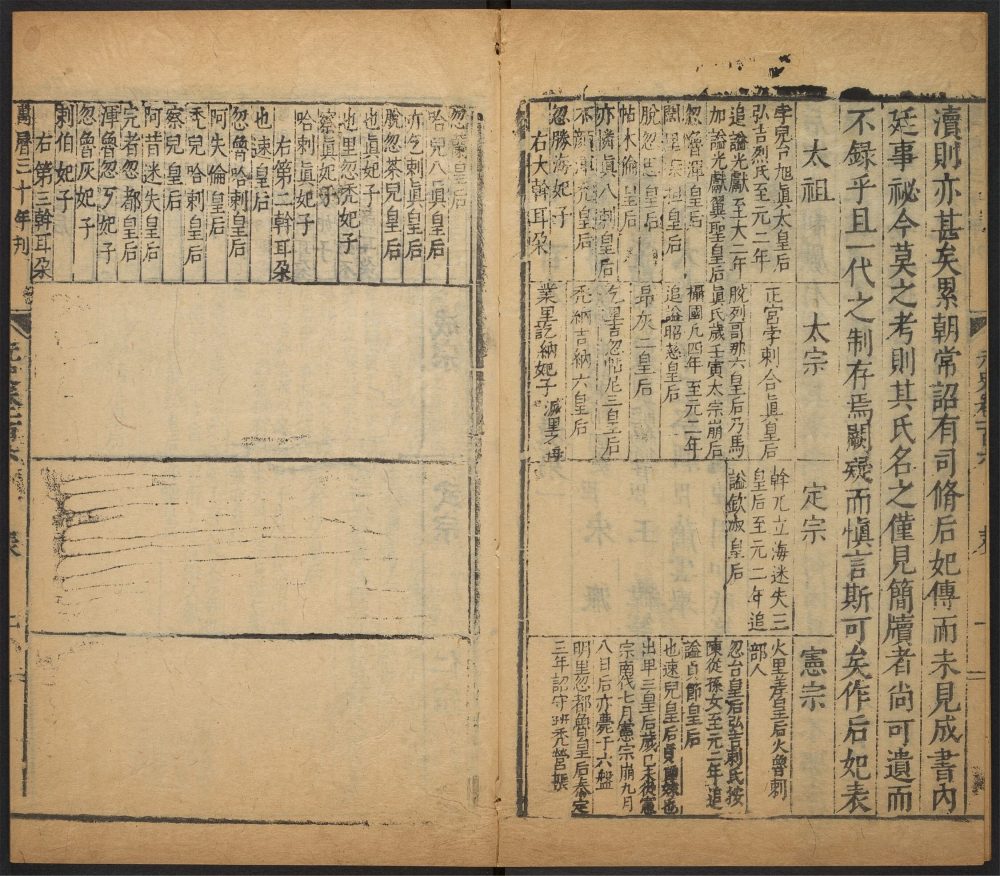 瀆則亦甚矣累朝常詔有司脩后妃傳而未見成書內
廷事祕今莫之考則其氏名之僅見簡牘者尚可遺而
不録乎且一代之制存焉闕疑而慎言斯可矣作后妃表
太祖
孛兒台旭真太皇后
弘吉烈氏至元二年
追謚光獻至大二年
加謚光獻翼聖皇后
忽魯渾皇后
闊里桀担皇后
脫忽思皇后
帖木倫皇后
亦憐真八剌皇后
不顏渾禿皇后
忽勝海妃子
右大斡耳朶
太宗
正宮孛剌合真皇后
脫列哥那六皇后乃馬
真氏歲壬寅太宗崩后
攝國凡四年至元二年
追謚昭慈皇后
昂灰二皇后
乞里吉忽帖尼三皇后
禿納吉納六皇后
業里訖納妃子滅里之母
定宗
斡兀立海迷失三
皇后至元二年追
謚欽淑皇后
憲宗
火里差皇后火魯剌
部人
忽台皇后弘吉剌氏按
陳從孫女至元二年追
謚貞節皇后
也速兒皇后貞節妹也
出卑三皇后歲己未從憲
宗南伐七月憲宗崩九月
八日后亦薨于六盤
明里忽都魯皇后泰定
三年詔守班禿營帳
皇后
哈兒八真皇后
亦乞剌真皇后
脫忽茶兒皇后
也真妃子
也里忽禿妃子
察真妃子
哈剌真妃子
右第二斡耳朶
也速皇后
忽魯哈剌皇后
阿失倫皇后
禿兒哈剌皇后
察兒皇后
阿昔迷失皇后
完者忽都皇后
渾魯忽歹妃子
忽魯灰妃子
剌伯妃子
右第三斡耳朶
萬曆三十年刋